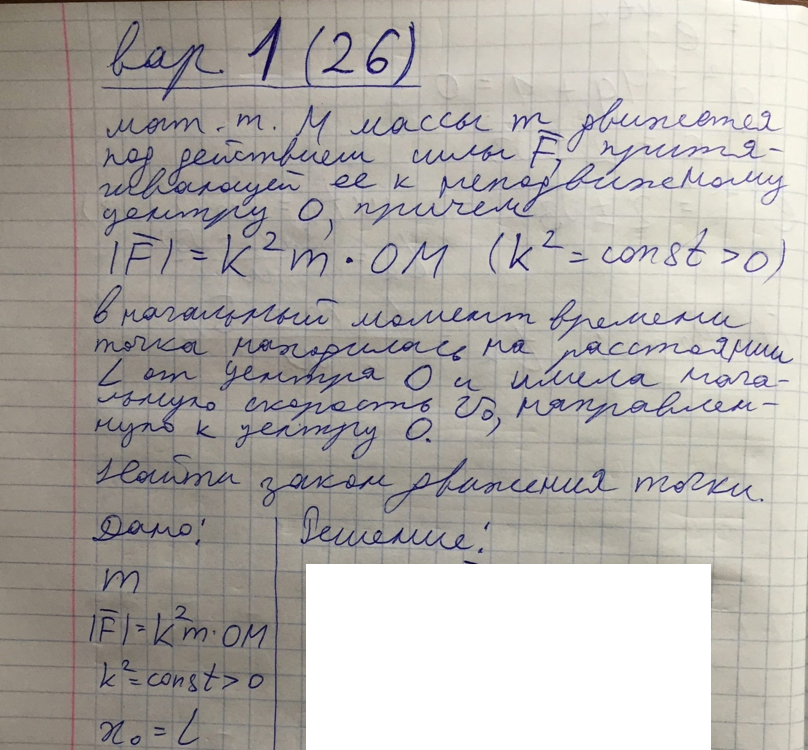 вар. 1 (26)
мат. т. М массы m движется
под действием силы F̅, притя-
гивающей ее к неподвижному
центру О, причем
|F̅| = k²m · OM (k² = const > 0)
в начальный момент времени
точка находилась на расстоянии
L от центра О и имела нача-
льную скорость v₀, направлен-
ную к центру О.
Найти закон движения точки.
Дано: Решение:
m
|F̅| = k²m · OM
k² = const > 0
x₀ = L